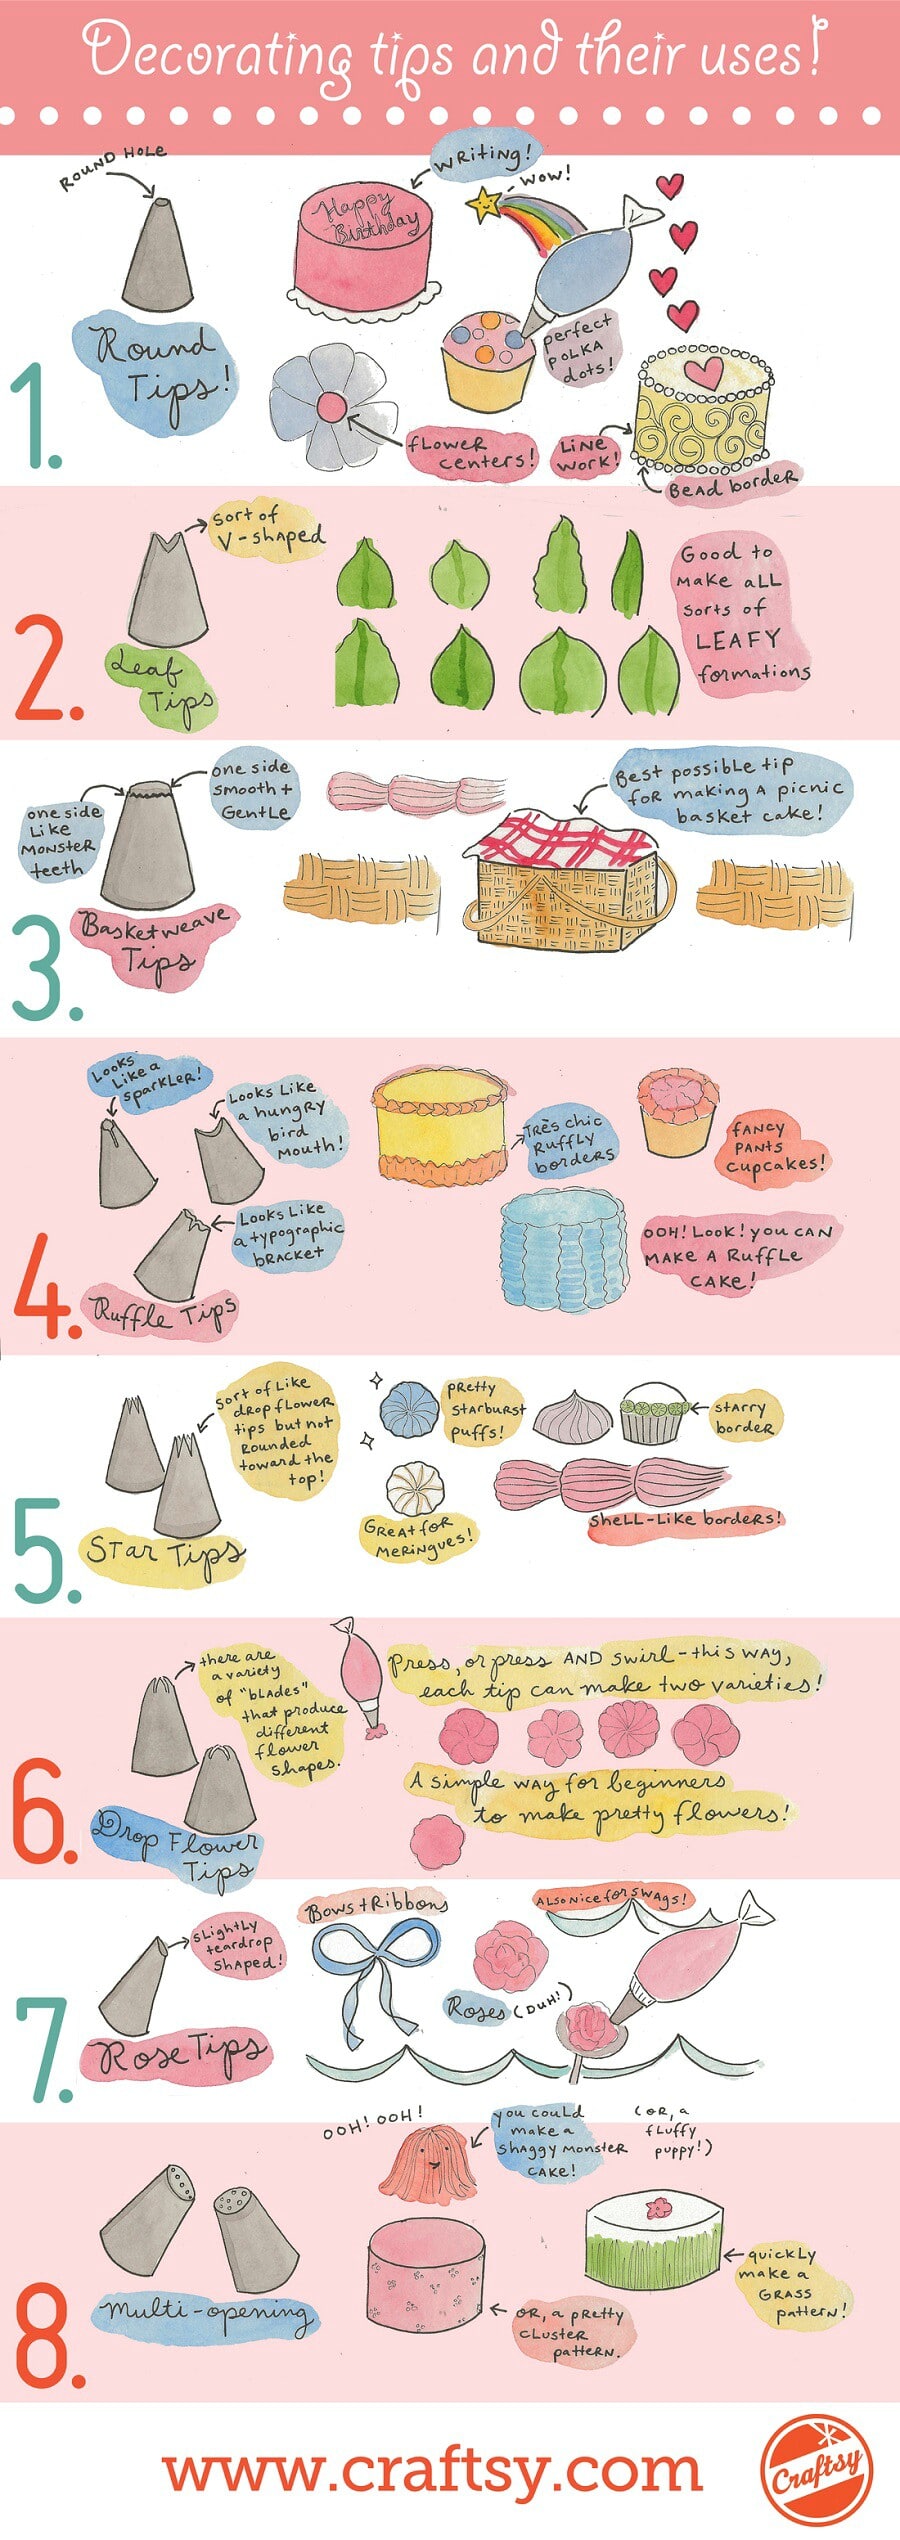 Decorating tips and their uses!
1.
ROUND HOLE
Round
Tips!
Happy
Birthday
writing!
WOW!
perfect
POLKA
dots!
flower
centers!
Line
work!
Bead border
2.
sort of
V-shaped
Leaf
Tips
Good to
make all
sorts of
LEAFY
formations
3.
one side
Like
Monster
teeth
one side
smooth +
Gentle
Basketweave
Tips
Best possible tip
for making a picnic
basket cake!
4.
Looks
Like a
sparkler!
Looks Like
a hungry
bird
mouth!
Looks Like
a typographic
bracket
Ruffle Tips
Très chic
Ruffly
borders
fancy
pants
cupcakes!
OOH! Look! you can
make a Ruffle
cake!
5.
sort of Like
drop flower
tips but not
rounded
toward the
top!
Star Tips
pretty
starburst
puffs!
Great for
meringues!
starry
border
shell-like borders!
6.
there are
a variety
of "blades"
that produce
different
flower
shapes.
Drop Flower
Tips
Press, or press AND swirl - this way,
each tip can make two varieties!
A simple way for beginners
to make pretty flowers!
7.
slightly
teardrop
shaped!
Rose Tips
Bows + Ribbons
Roses (DUH!)
ALSO nice for swags!
8.
Multi-opening
OOH! OOH!
you could
make a
shaggy monster
cake!
(or, a
fluffy
puppy!)
or, a pretty
cluster
pattern.
quickly
make a
GRASS
pattern!
www.craftsy.com
Craftsy